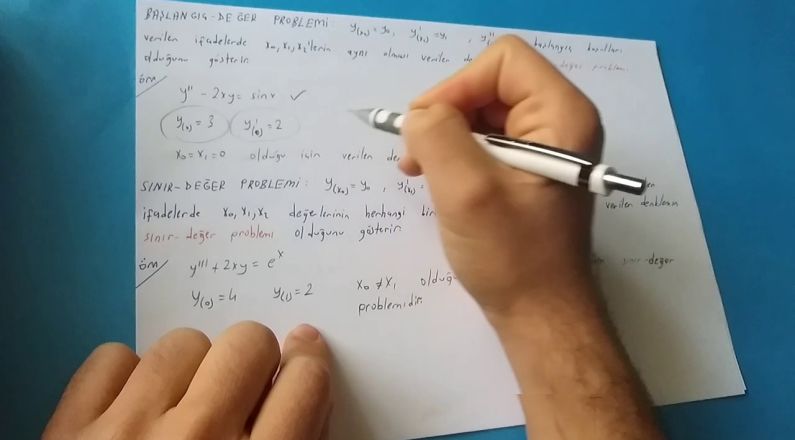 BAŞLANGIÇ-DEĞER PROBLEMİ: y(x₀)=y₀, y'(x₀)=y₁, y'' başlangıç koşulları
verilen ifadelerde x₀,x₁,x₂'lerin aynı olması verilen değer problemi
olduğunu gösterir.
ÖRN
y''-2xy=sinx ✓
y(0)=3 y'(0)=2
x₀=x₁=0 olduğu için verilen
SINIR-DEĞER PROBLEMİ: y(x₀)=y₀, y'(x₀)=
ifadelerde x₀,x₁,x₂ değerlerinin herhangi bir verilen denklemin
sınır-değer problemi olduğunu gösterir.
ÖRN
y'''+2xy=eˣ
y(0)=4 y(1)=2 x₀≠x₁ sınır-değer
problemidir.